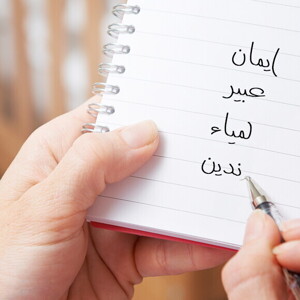 إيمان
عبير
لمياء
ندين